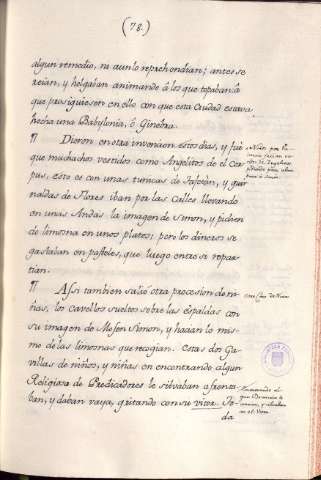 (78.)
algun remedio, ni aun lo reprehondian; antes se
reian, y holgaban animando â los que topaban â
que prosiguiesen en ello con que esta Ciudad estava
hecha una Babylonia, ô Ginebra.
¶ Dieron en otra invencion estos dias, y fuè
que muchachos vestidos como Angelitos de el Cor-
pus, esto es con unas tunicas de Tafetàn, y guir-
naldas de Flores iban por las Calles llevando
en unas Andas la imagen de Simon, y pidien
de limosna en unos platos; pero los dineros se
gastaban en pasteles, que luego entre si repar-
tian.
¶ Assi tambien saliò otra procesion de ni-
ñas, los cavellos sueltos sobre las espaldas con
su imagen de Mosen Simon, y hacian lo mis-
mo de las limosnas que recogian. Estas dos Ga-
villas de niños, y niñas en encontrando algun
Religioso de Predicadores le silvaban afrenta-
ban, y daban vaya, gritando con su vitor. To-
da
Niños por
Otra de Niñas.